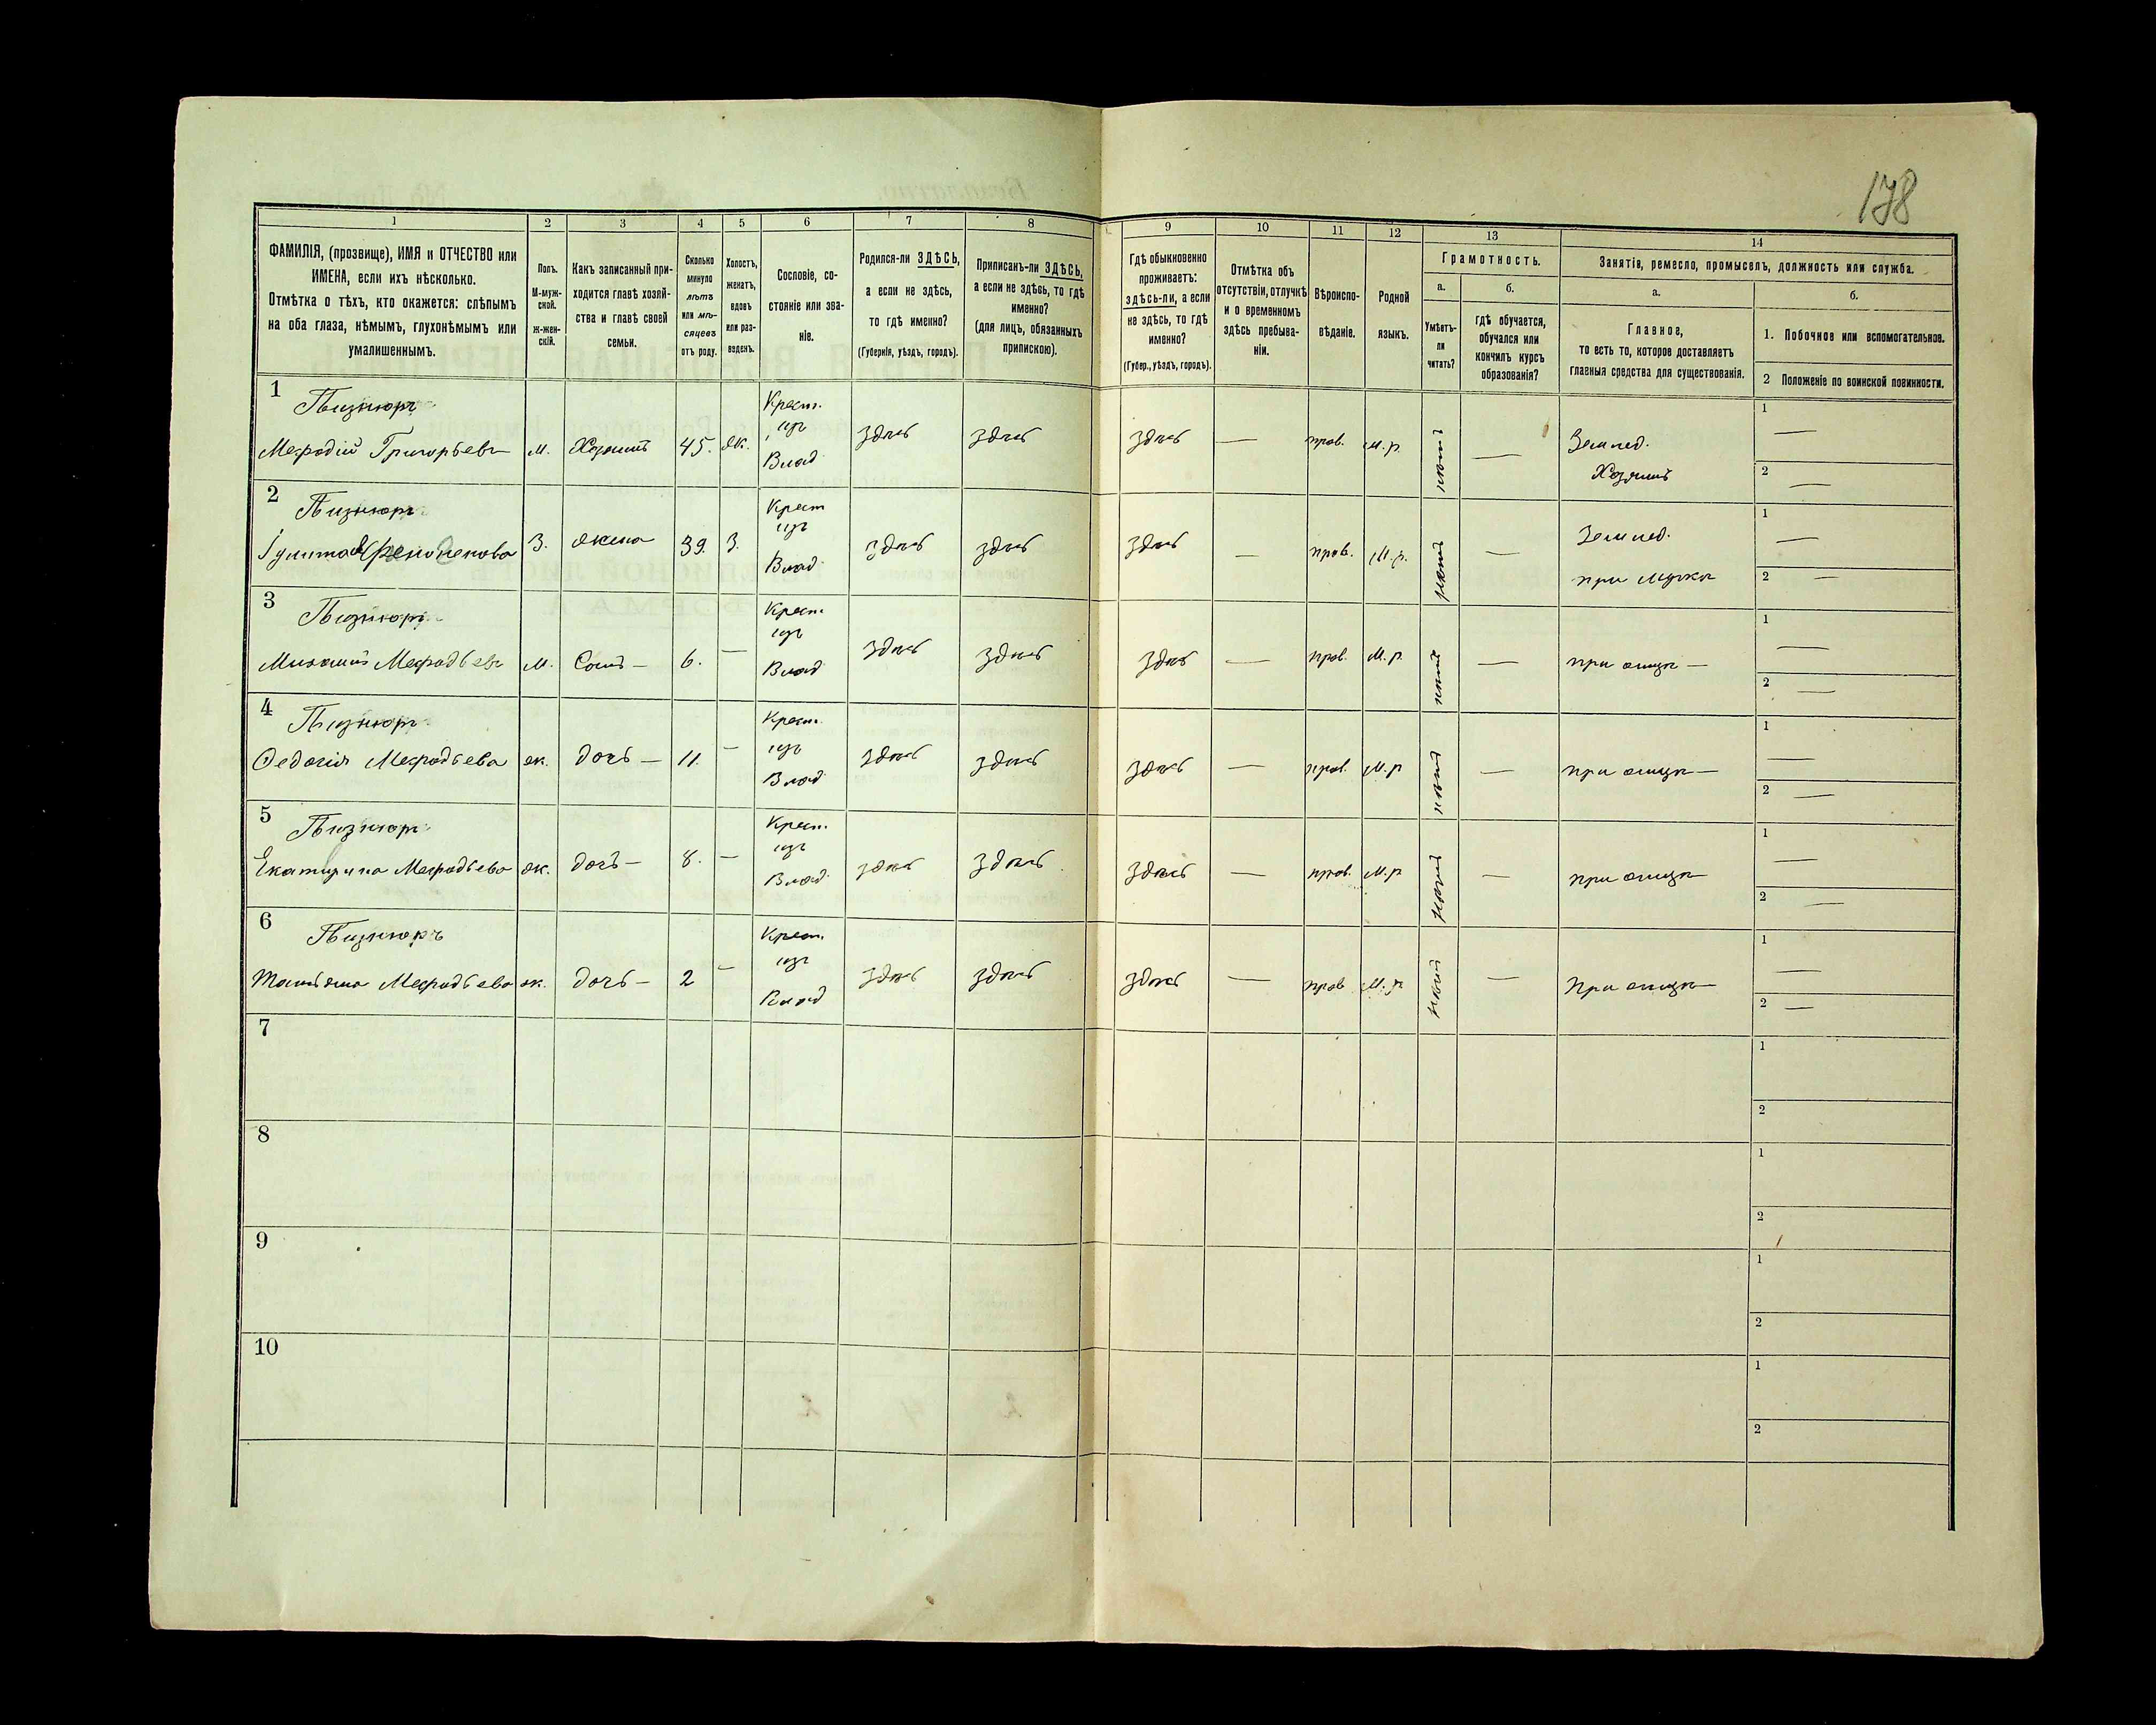 178
1 2 3 4 5 6 7 8 9 10 11 12 13 14
ФАМИЛІЯ, (прозвище), ИМЯ и ОТЧЕСТВО или
ИМЕНА, если ихъ нѣсколько.
Отмѣтка о тѣхъ, кто окажется: слѣпымъ
на оба глаза, нѣмымъ, глухонѣмымъ или
умалишеннымъ.
Полъ.
М-муж-
ской.
ж-жен-
скій.
Какъ записанный при-
ходится главѣ хозяй-
ства и главѣ своей
семьи.
Сколько
минуло
лѣтъ
или мѣ-
сяцевъ
отъ роду.
Холостъ,
женатъ,
вдовъ
или раз-
веденъ.
Сословіе, со-
стояніе или зва-
ніе.
Родился-ли ЗДѢСЬ,
а если не здѣсь,
то гдѣ именно?
(Губернія, уѣздъ, городъ).
Приписанъ-ли ЗДѢСЬ,
а если не здѣсь, то гдѣ
именно?
(для лицъ, обязанныхъ
припискою).
Гдѣ обыкновенно
проживаетъ:
здѣсь-ли, а если
не здѣсь, то гдѣ
именно?
(Губер., уѣздъ, городъ).
Отмѣтка объ
отсутствіи, отлучкѣ
и о временномъ
здѣсь пребыва-
ніи.
Вѣроиспо-
вѣданіе.
Родной
языкъ.
Грамотность.
а.
Умѣетъ-
ли
читать?
б.
гдѣ обучается,
обучался или
кончилъ курсъ
образованія?
Занятія, ремесло, промыселъ, должность или служба.
а.
Главное,
то есть то, которое доставляетъ
главныя средства для существованія.
б.
1. Побочное или вспомогательное.
2 Положеніе по воинской повинности.
1
Мефодій Григорьевъ м. Хозяинъ 45. ж.
Крест.
изъ
Влад
здѣсь здѣсь здѣсь — прав. м.р. нѣтъ —
Землед.
Хозяинъ
1 —
2 —
2
З. жена 39. З.
Крест
изъ
Влад
здѣсь здѣсь здѣсь — прав. М.р. нѣтъ —
Землед.
при мужѣ
1 —
2 —
3
Михаилъ Мефодьевъ м. Сынъ — 6. —
Крест.
изъ
Влад
здѣсь здѣсь здѣсь — прав. М.р. нѣтъ — при отцѣ —
1 —
2 —
4
Федосія Мефодьева ж. дочь — 11. —
Крест.
изъ
Влад
здѣсь здѣсь здѣсь — прав. М.р нѣтъ — при отцѣ —
1 —
2 —
5
Екатирина Мефодьева ж. дочь — 8. —
Крест.
изъ
Влад
здѣсь здѣсь здѣсь — прав. М.р нѣтъ — при отцѣ
1 —
2 —
6
Татьяна Мефодьева ж. дочь — 2 —
Крест.
изъ
Влад
здѣсь здѣсь здѣсь — прав М.р нѣтъ — При отцѣ —
1 —
2 —
7
1
2
8
1
2
9
1
2
10
1
2